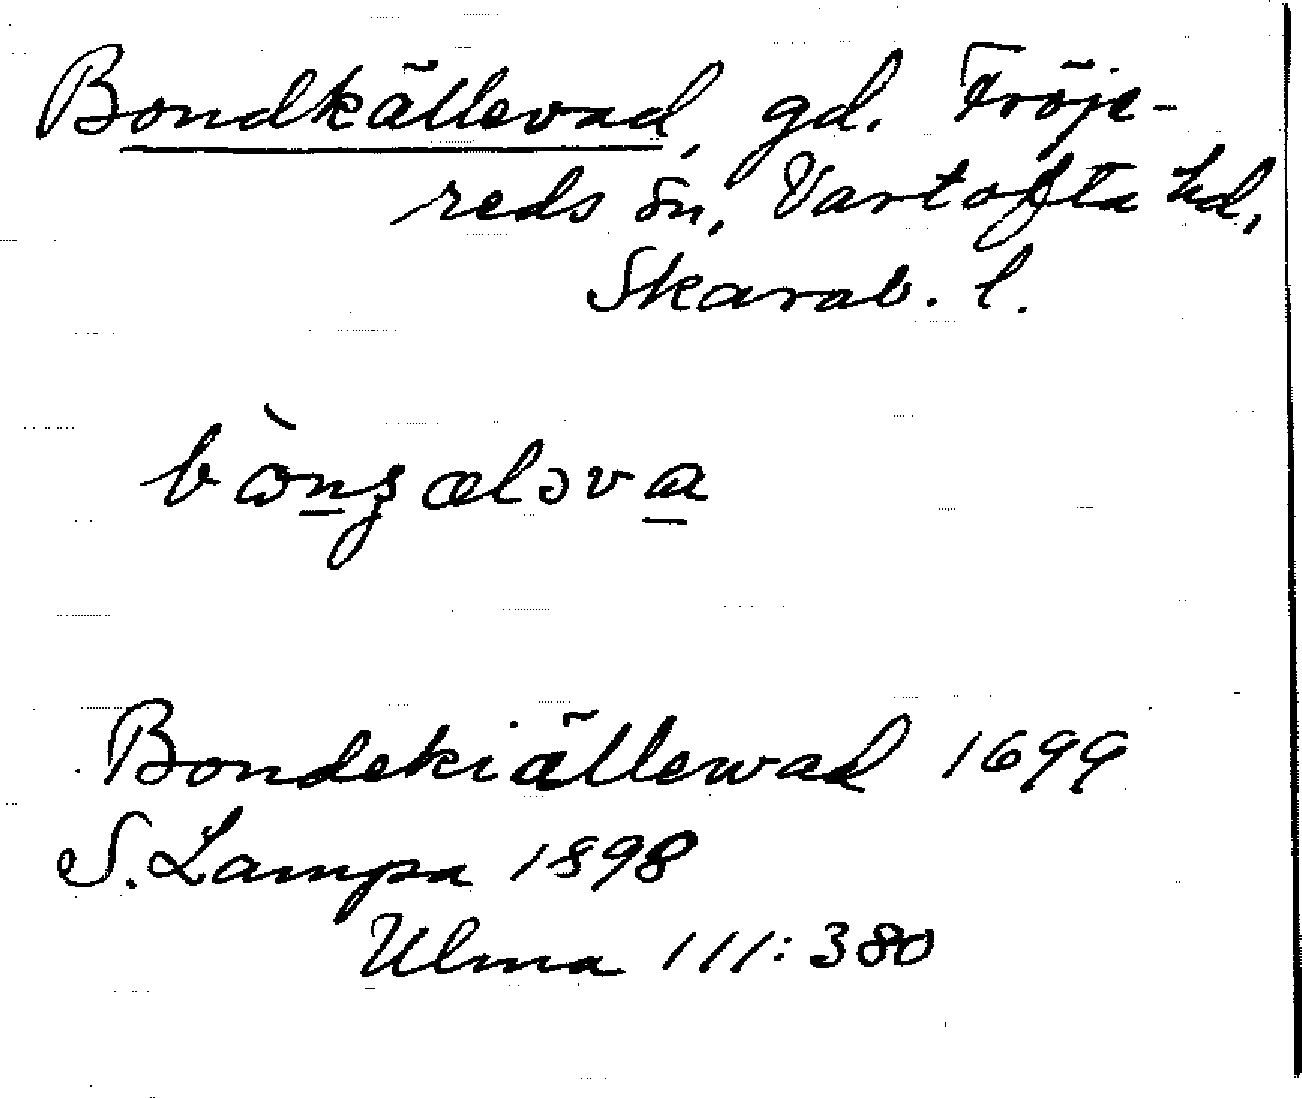 Bondkällevad, gd. Fröje-
reds sn, Vartofta hd,
Skarab. l.
Bondekiällewad 1699
S. Lampa 1898
Ulma 111:380